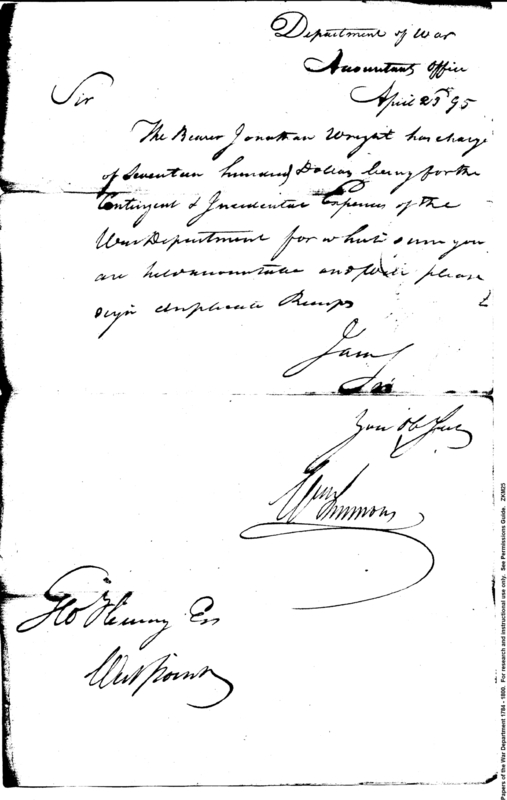 Department of War
Accountants Office
April 23d 95
Sir
The Bearer Jonathan Wright has charge
of Seventeen hundred Dollars being for the
Contingent & Incidental Expences of the
War Department for which sum you
are held accountable and will please
sign duplicate Receipts
I am
Sir
Your Ob Serv
Wm Simmons
Geo Fleming Esq
West Point
Papers of the War Department 1784 - 1800. For research and instructional use only. See Permissions Guide. ZXM25